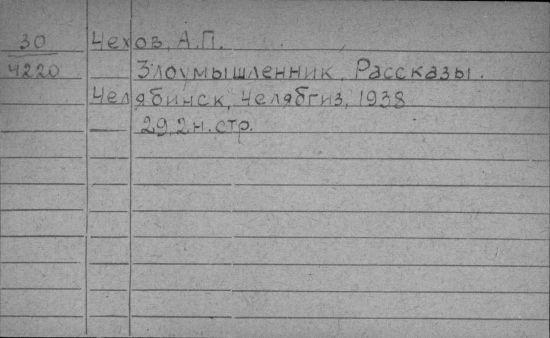 30 Чехов, А.П.
4220 Злоумышленник. Рассказы.
Челябинск, Челябгиз, 1938
29, 2 н. стр.